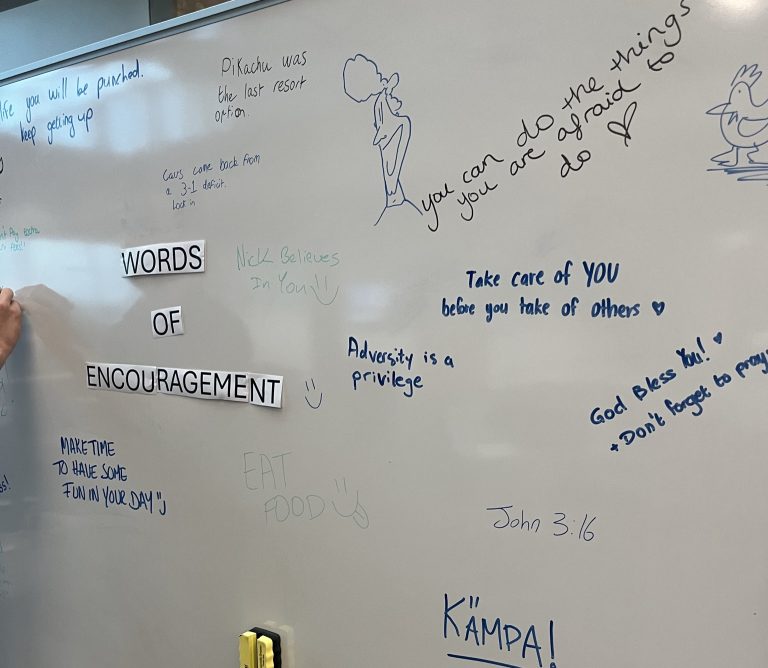 life you will be punched.
keep getting up
Pikachu was
the last resort
option.
Cavs came back from
a 3-1 deficit.
Lock in
you can do the things
you are afraid to
do
WORDS
OF
ENCOURAGEMENT
Nick Believes
In You
Take care of YOU
before you take of others
Adversity is a
privilege
God Bless You!
+ Don't forget to pray
MAKE TIME
TO HAVE SOME
FUN IN YOUR DAY
EAT
FOOD
John 3:16
KÄMPA!